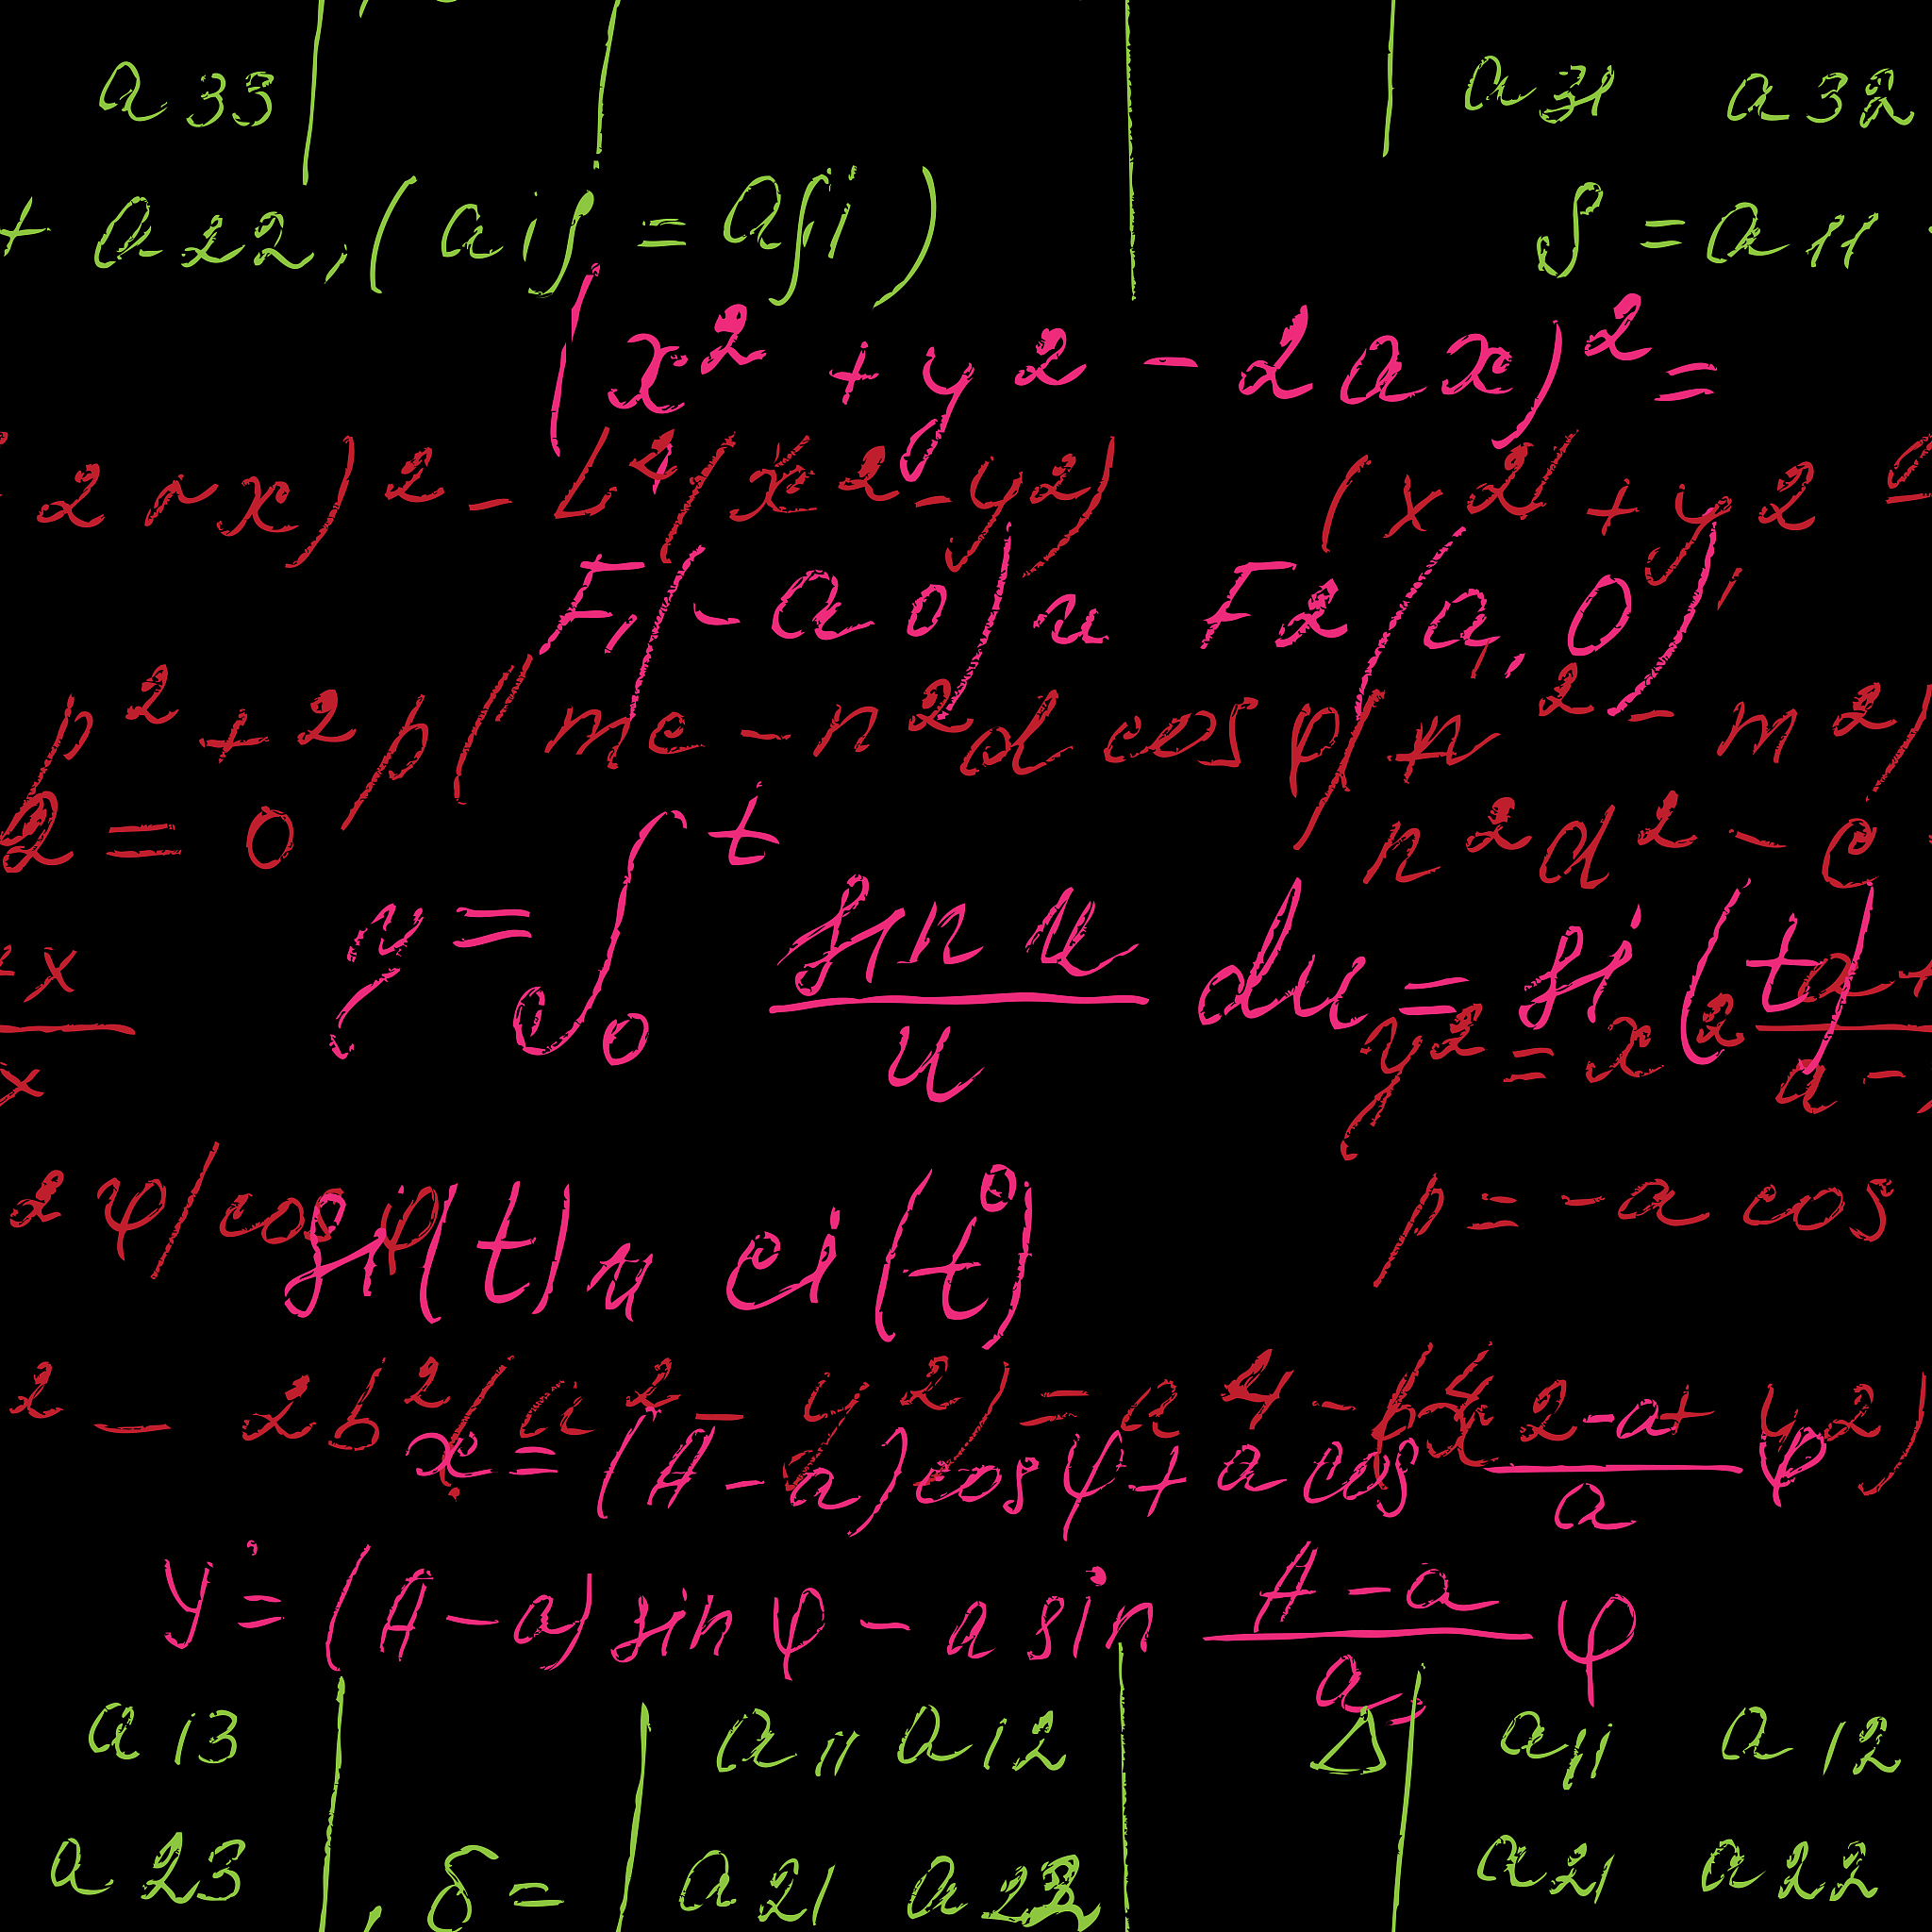 a 33 | | | | a 31 a 32
+ a 22, (a ij = a ji) | S = a 11
(x² + y² - 2ax)² =
2ax)² - b⁴(x² - y²) (x² + y²
F₁(-a 0) и F₂(a, 0)
p² + 2p(mc - n²d cos φ) n² - m²)
2 = 0 n²d² - c
y = ∫₀ᵗ sin u / u du = si(t)
x y² = x² a + / a -
x
² φ / cos φ p = -a cos
si(t) и ci(t)
² - 2b²(x² - y²) = a⁴ - b⁴ x² + y²)
x = (A - a) cos φ + a cos -a / a φ
y = (A - a) sin φ - a sin A - a / a φ
a 13 | | a 11 a 12 | Δ | a 11 a 12
a 23 | , δ = | a 21 a 22 | | a 21 a 22